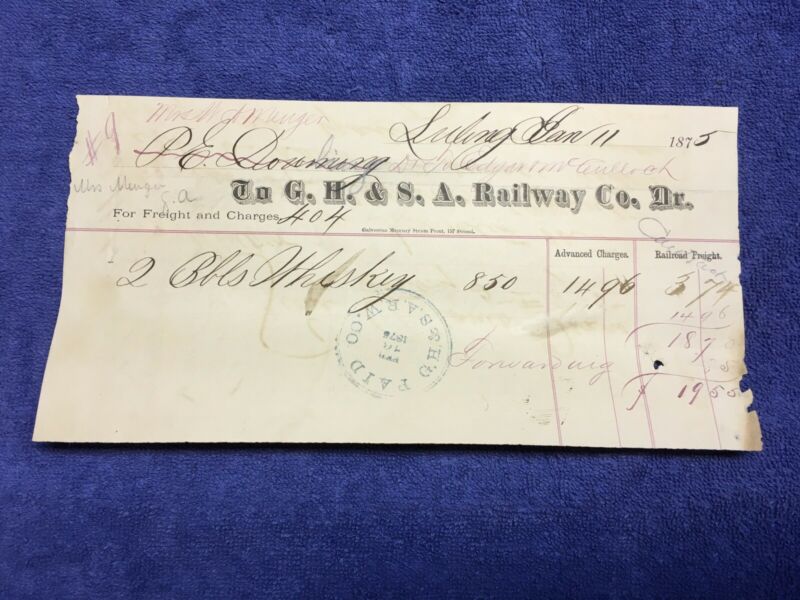 Mrs W A Menger
Luling Jan 11 1875
# 9
P. E. Downing Dr To Edgar & McCulloch
Mrs Menger
S. A
To G. H. & S. A. Railway Co. Dr.
For Freight and Charges, 404
Galveston Mercury Steam Print, 157 Strand.
Advanced Charges. Railroad Freight.
2 Bbls Whiskey 850 1496 374
1496
PAID
G. H. & S. A. R. W. CO
1875
187
Forwarding
$ 1955